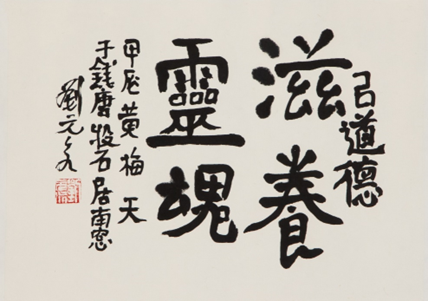 㠯道德
滋養
靈魂
甲辰黃梅天
于錢唐石居南窗
劉元